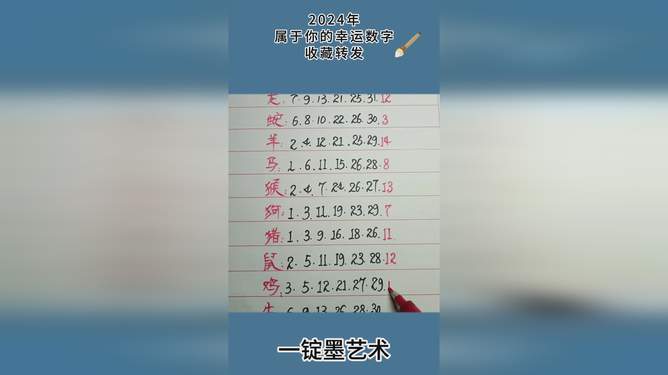 2024年
属于你的幸运数字
收藏转发
7.9.13.21.25.31.12
蛇:6.8.10.22.26.30.3
羊:2.4.12.21.25.29.14
马:2.6.11.15.26.28.8
猴:2.4.7.24.26.27.13
狗:1.3.11.19.23.29.7
猪:1.3.9.16.18.26.11
鼠:2.5.11.19.23.28.12
鸡:3.5.12.21.27.29.
6.9.13.26.28.30
一锭墨艺术